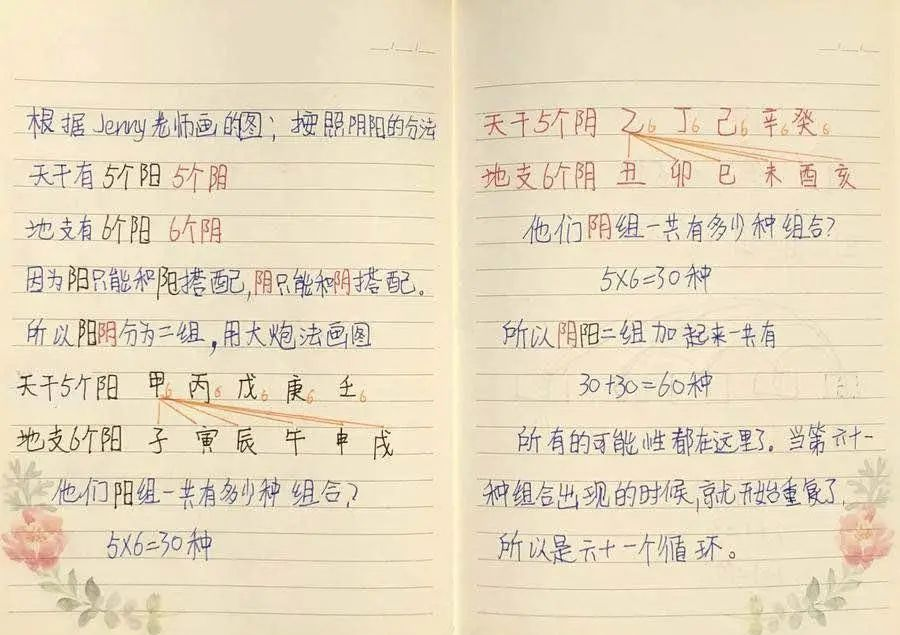 根据Jenny老师画的图；按照阴阳的分法
天干有5个阳 5个阴
地支有6个阳 6个阴
因为阳只能和阳搭配，阴只能和阴搭配。
所以阳阴分为二组，用大炮法画图
天干5个阳 甲6 丙6 戊6 庚6 壬6
地支6个阳 子 寅 辰 午 申 戌
他们阳组一共有多少种组合？
5×6=30种
天干5个阴 乙6 丁6 己6 辛6 癸6
地支6个阴 丑 卯 巳 未 酉 亥
他们阴组一共有多少种组合？
5×6=30种
所以阴阳二组加起来一共有
30+30=60种
所有的可能性都在这里了。当第六十一
种组合出现的时候，就开始重复了，
所以是六十一个循环。